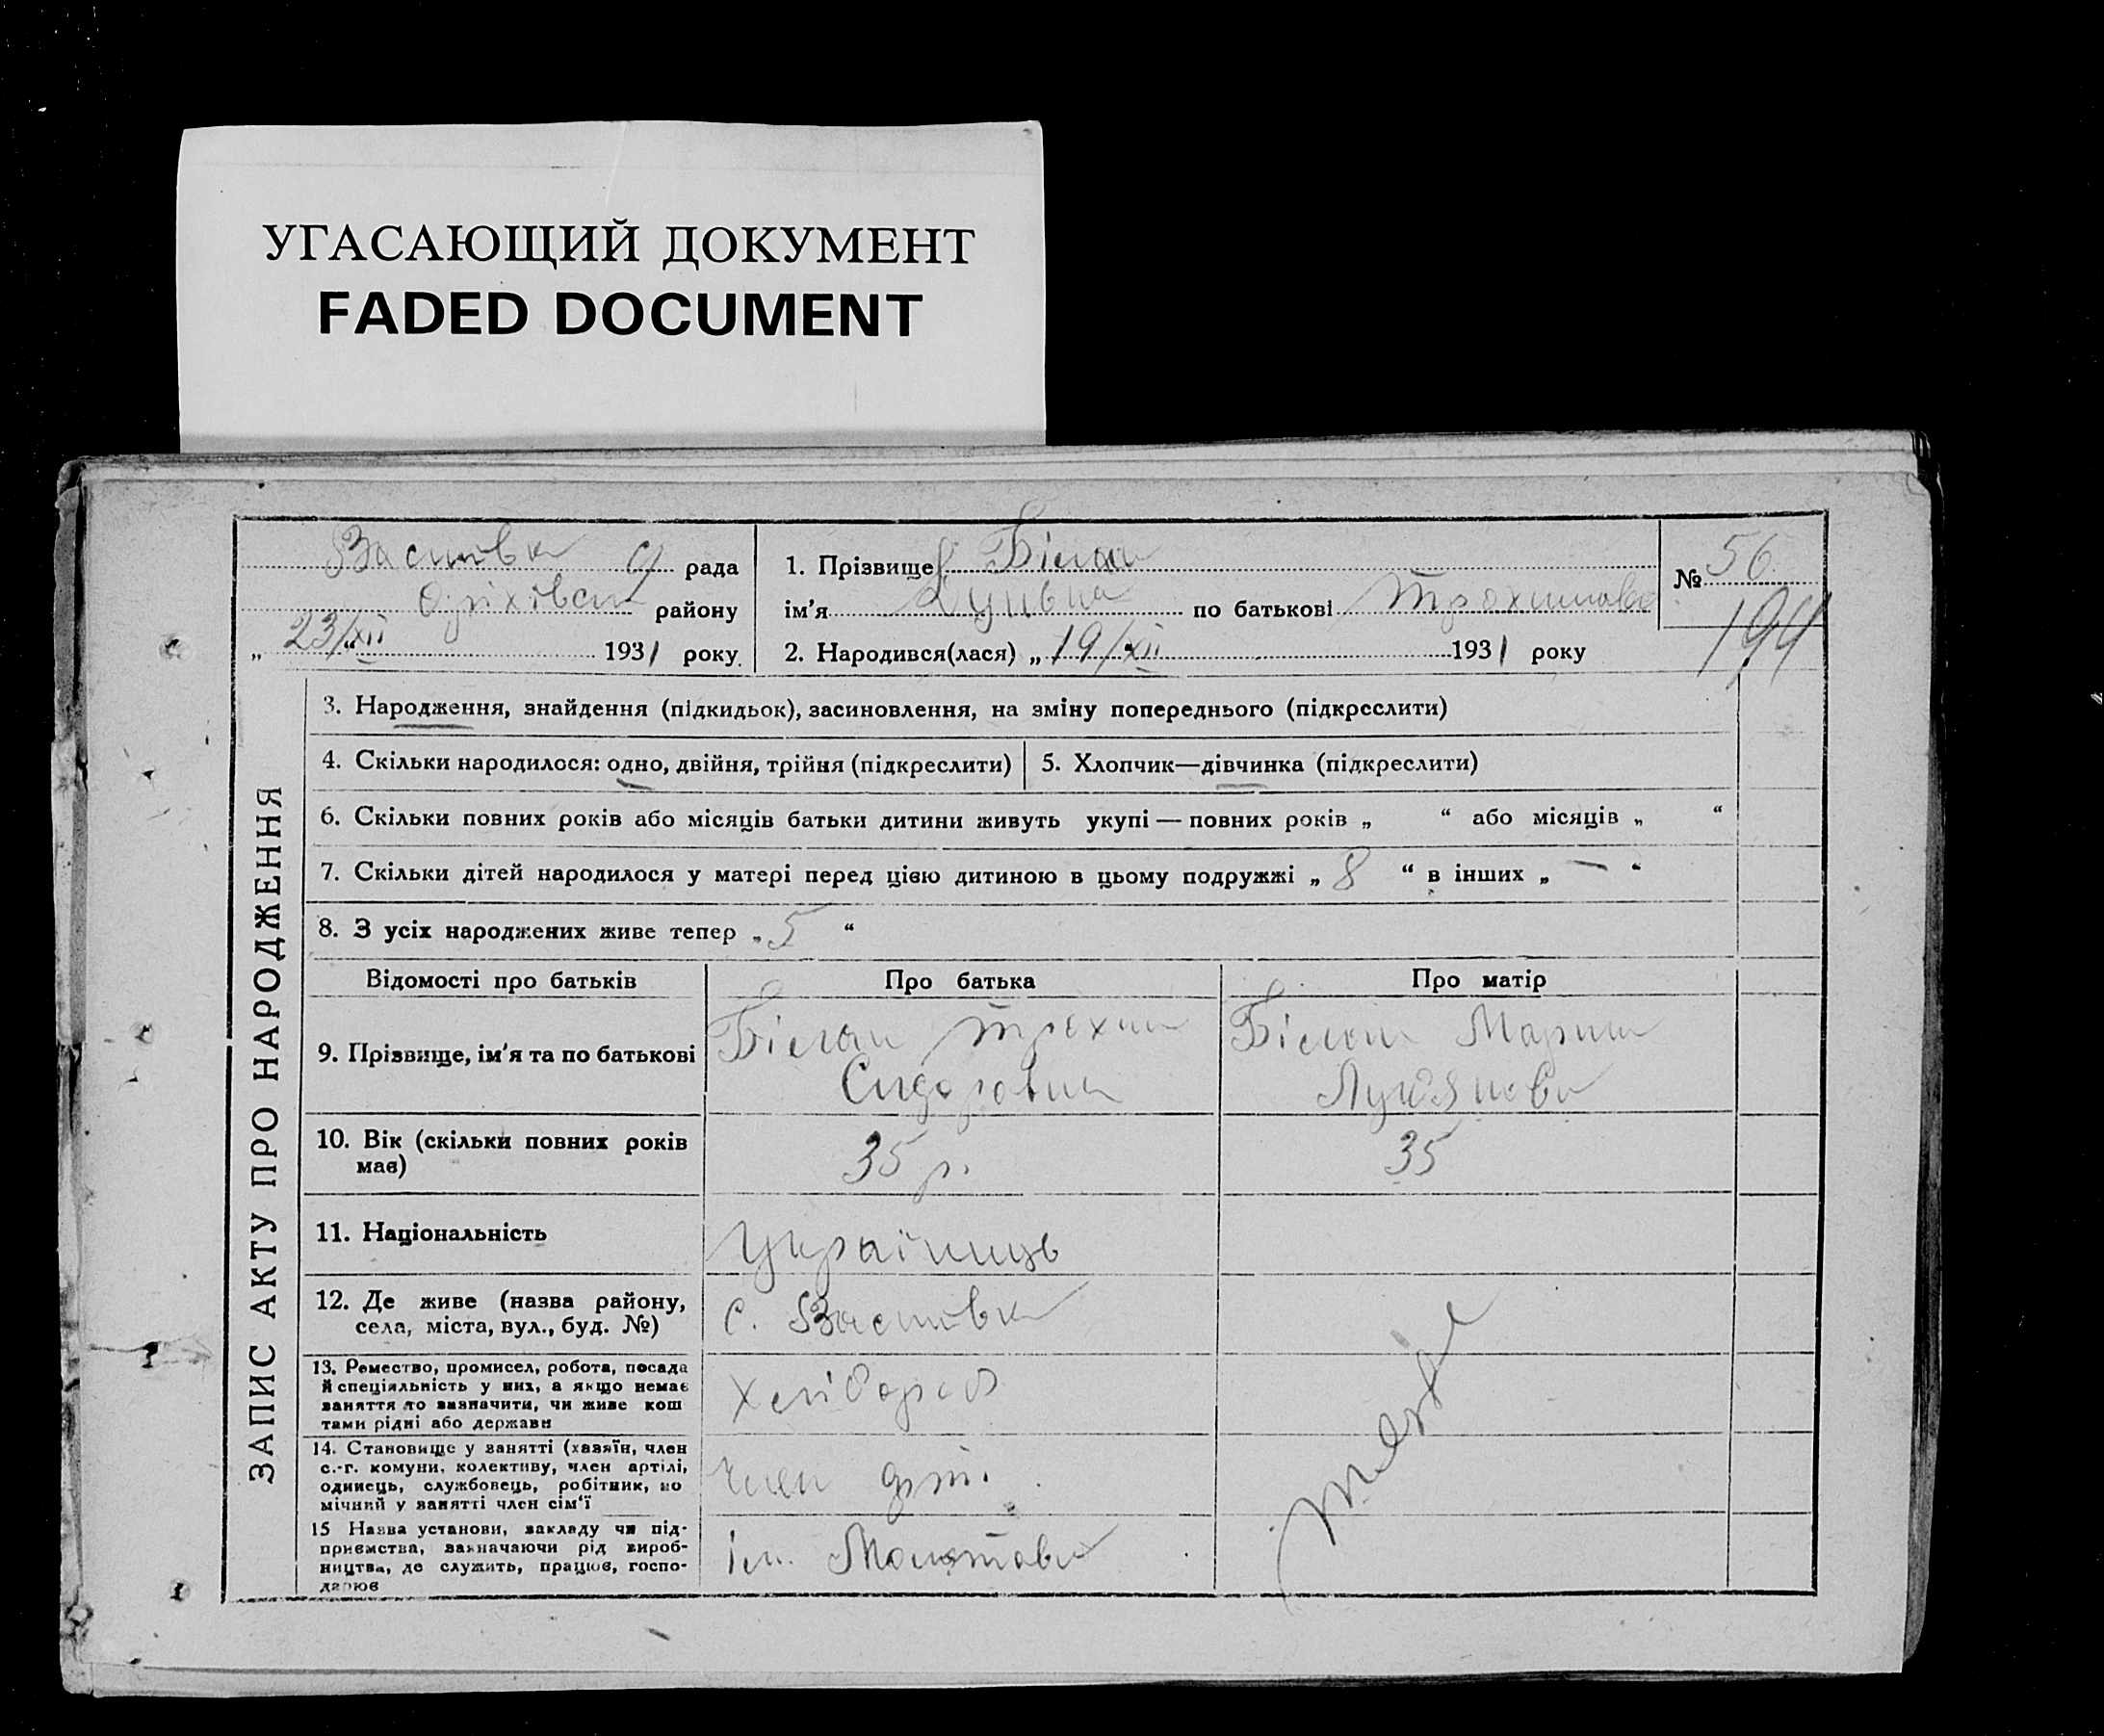 УГАСАЮЩИЙ ДОКУМЕНТ
FADED DOCUMENT
рада
району
„ 23/XII “ 1931 року
1. Прізвище Білан
ім’я по батькові
2. Народився(лася) „ 19/XII 1931 року
№ 56
194
ЗАПИС АКТУ ПРО НАРОДЖЕННЯ
3. Народження, знайдення (підкидьок), засиновлення, на зміну попереднього (підкреслити)
4. Скільки народилося: одно, двійня, трійня (підкреслити)
5. Хлопчик—дівчинка (підкреслити)
6. Скільки повних років або місяців батьки дитини живуть укупі — повних років „ “ або місяців „ “
7. Скільки дітей народилося у матері перед цією дитиною в цьому подружжі „ 8 “ в інших „ — “
8. З усіх народжених живе тепер „ 5 “
Відомості про батьків
Про батька
Про матір
9. Прізвище, ім’я та по батькові
Білан Трохим
Сидорович
Білан Марин
10. Вік (скільки повних років
має)
35 р.
35
11. Національність
Українець
12. Де живе (назва району,
села, міста, вул., буд. №)
с.
13. Ремество, промисел, робота, посада
й спеціяльність у них, а якщо немає
заняття то зазначити, чи живе кош
тами рідні або держави
Хлібороб
14. Становище у занятті (хазяїн, член
с.-г. комуни, колективу, член артілі,
одинець, службовець, робітник, по
мічний у занятті член сім’ї
член арт.
15 Назва установи, закладу чи під-
приємства, зазначаючи рід вироб-
ництва, де служить, працює, госпо-
дарює
ім. Молотова